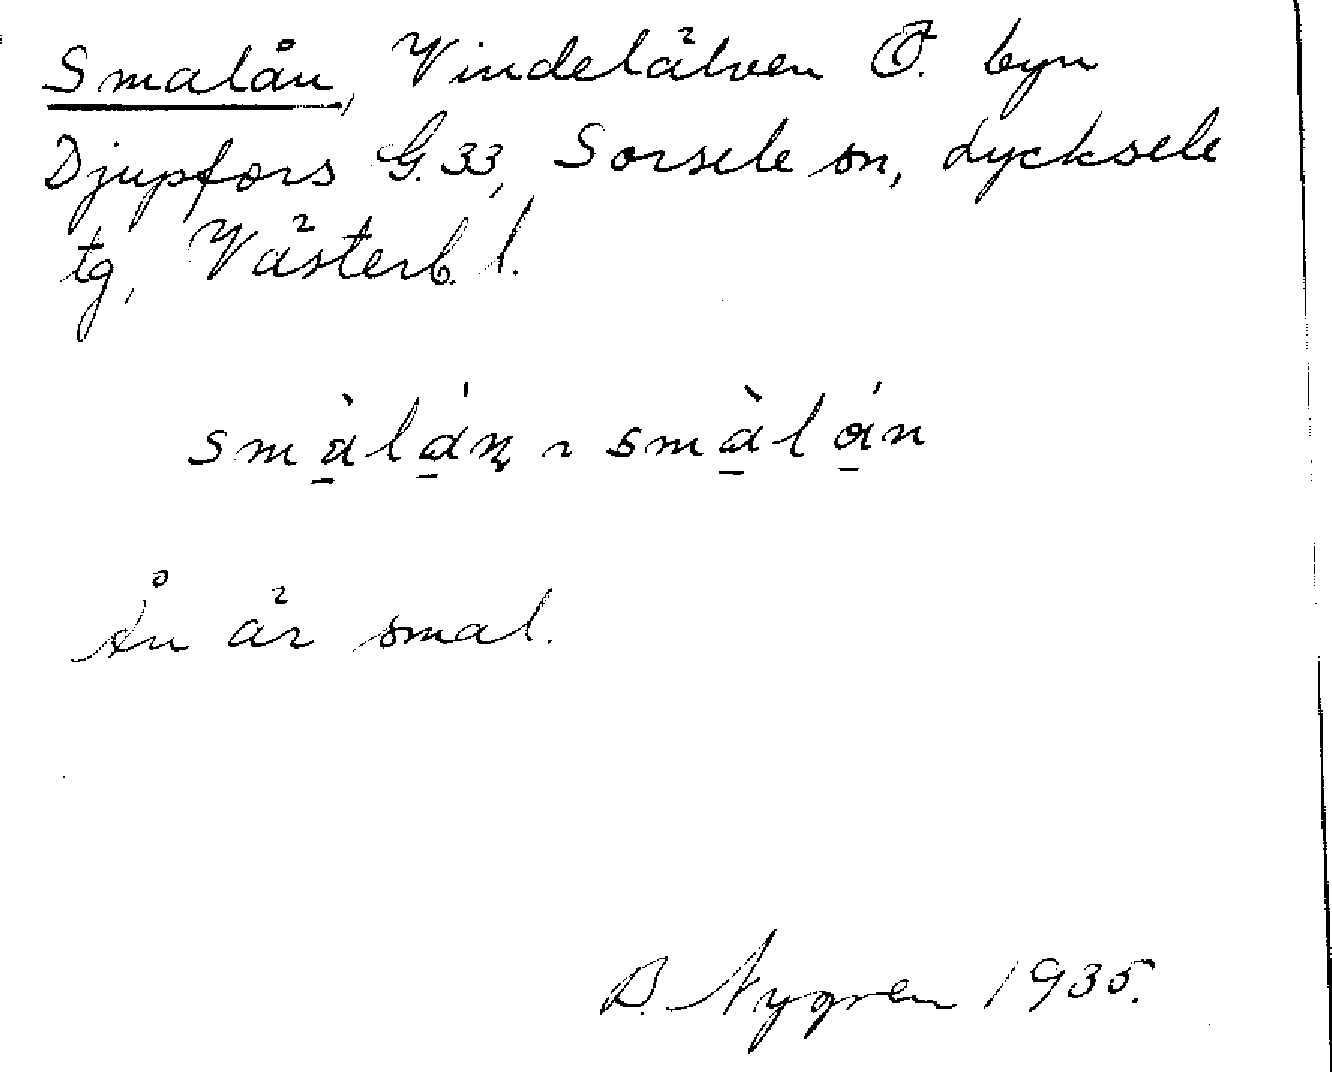 Smalån, Vindelälven Ö. byn
Djupfors G. 33, Sorsele sn, Lycksele
tg, Västerb. l.
smà̱lá̱n ~ smà̱lά̱n
Ån är smal.
B. Nygren 1935.